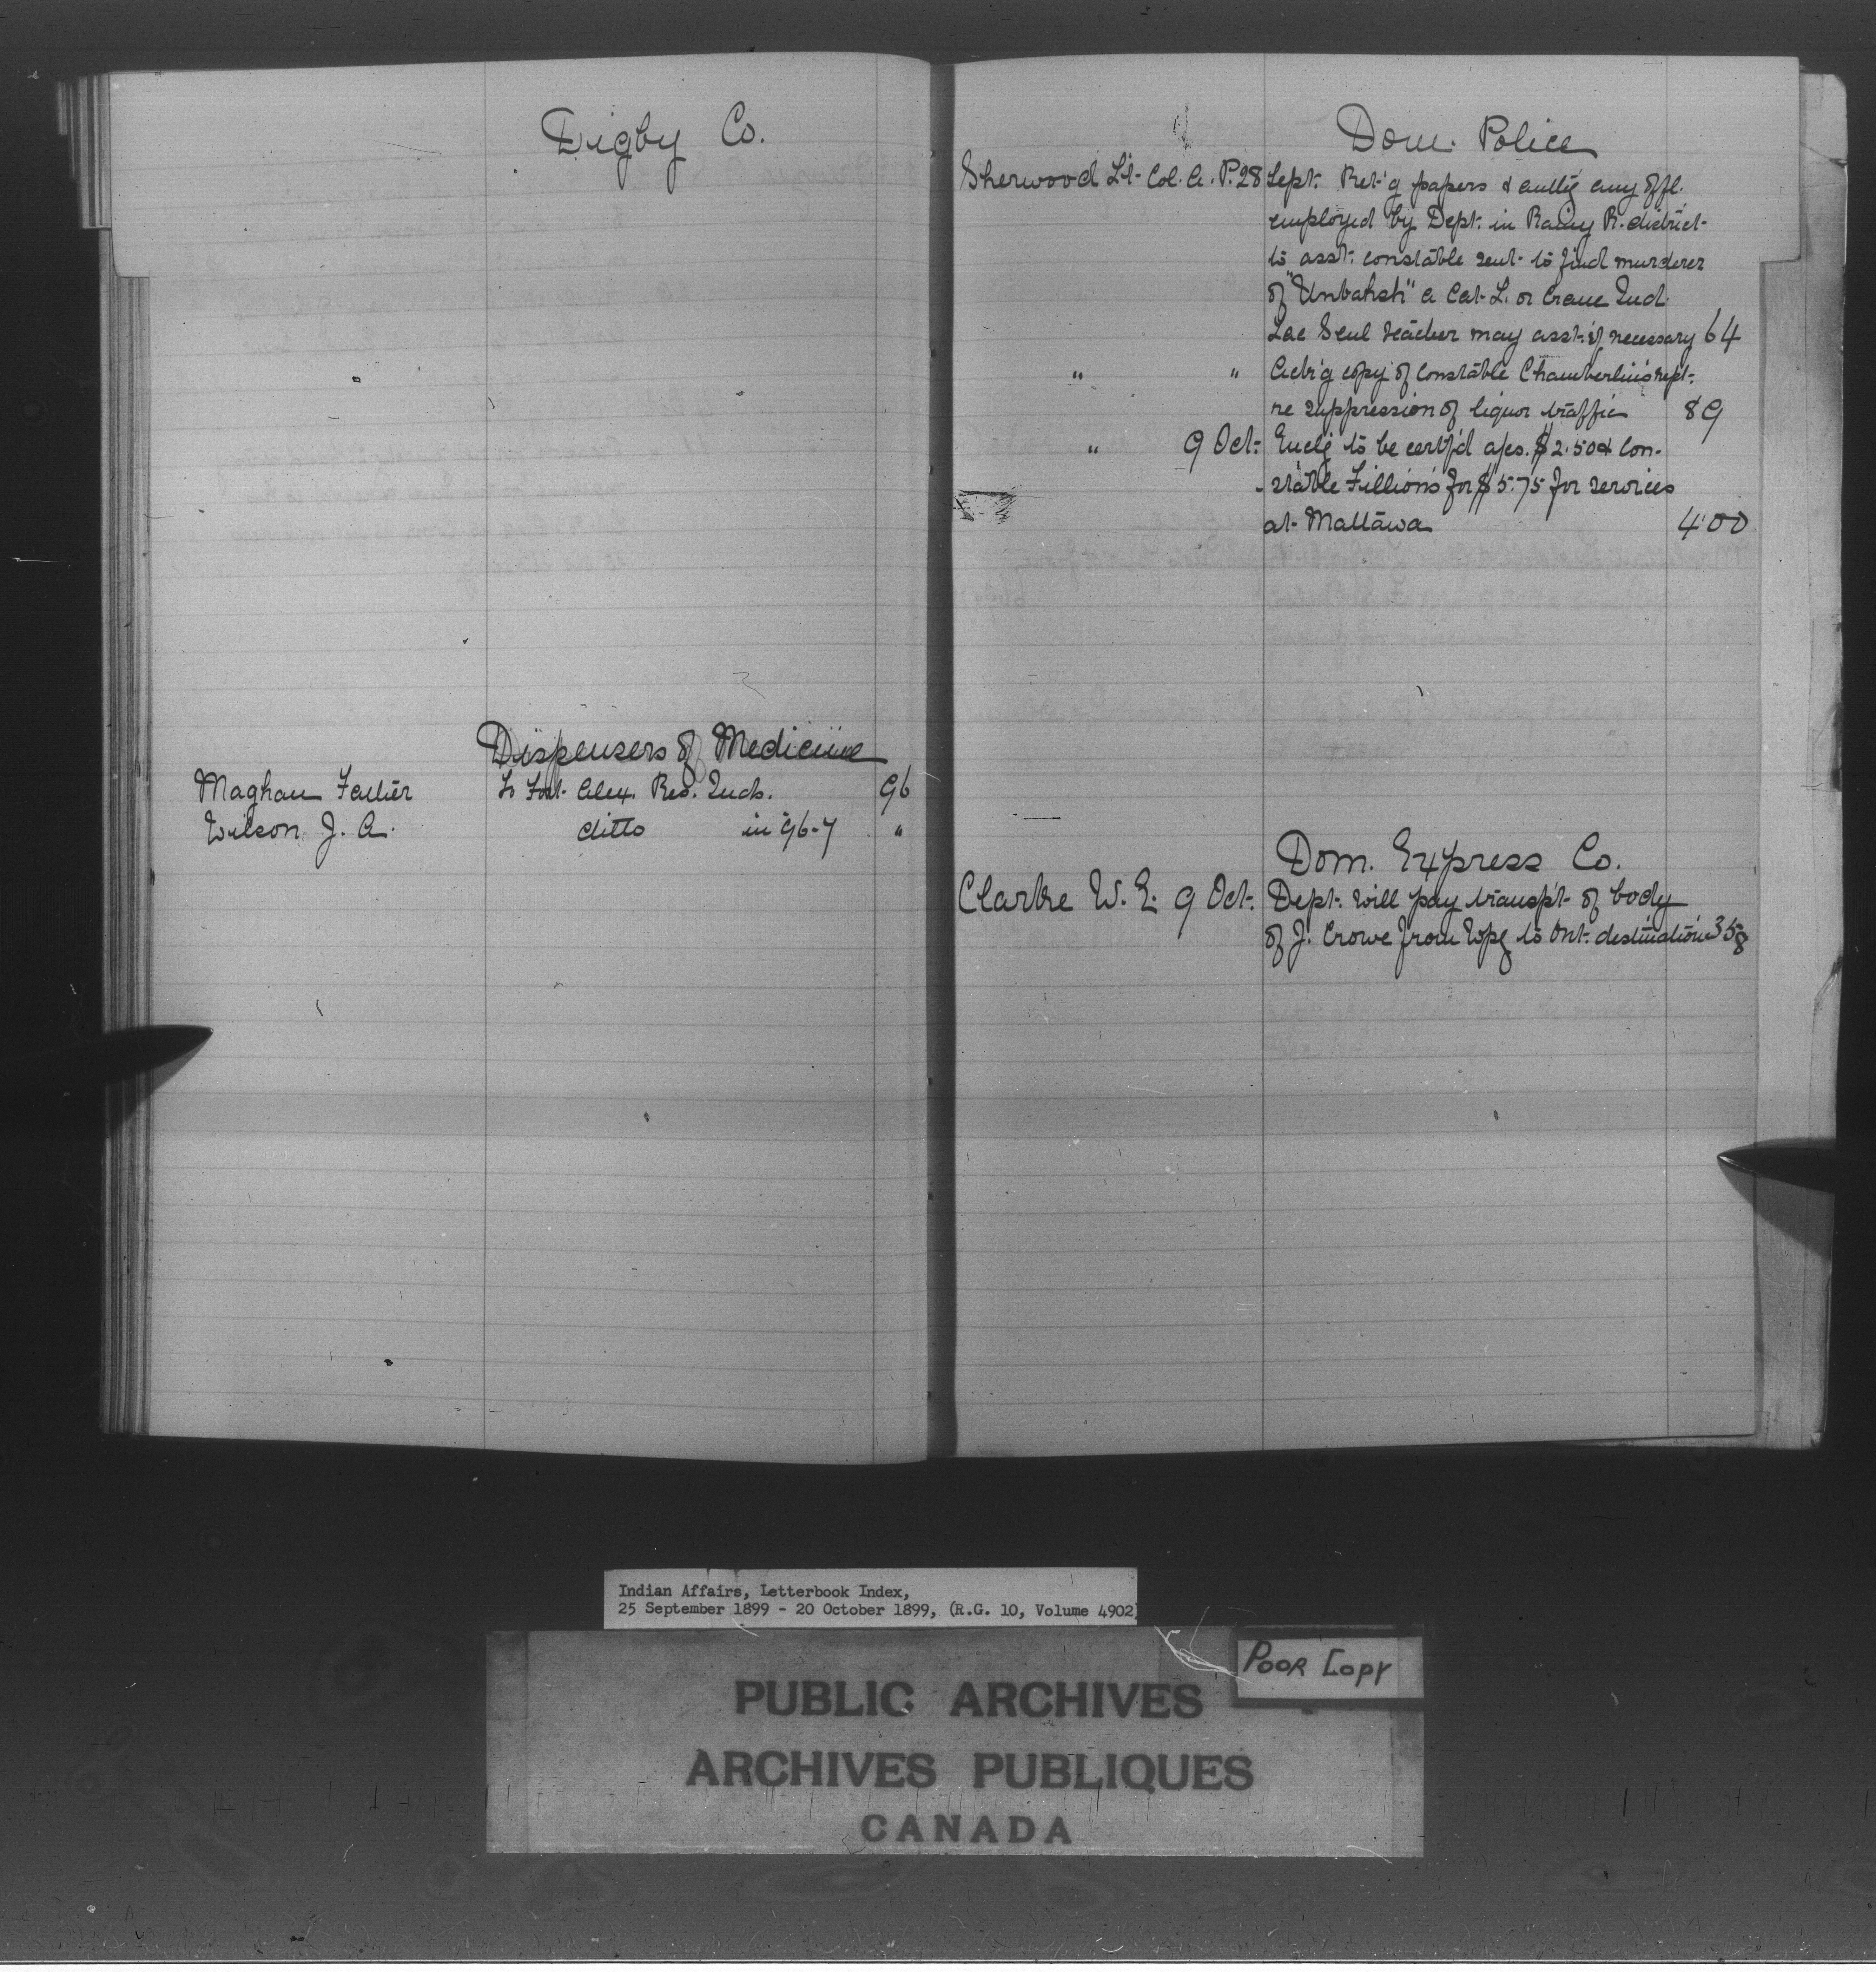 Digby Co.
Dispensers of Medicine
Maghan Father To Fort Alex. Res. Inds. 96
Wilson J. A. ditto in 96-7 "
Dom. Police
Sherwood Lt- Col. A. P. 28 Sept. Ret'g papers & any offl.
employed by Dept. in Rainy R. district
to asst. constable sent to find murderer
of "Unbahsh" a Cat L. or Crane Ind.
Lac Seul teacher may asst. if necessary 64
" " copy of constable Chamberlin's rept.
re suppression of liquor traffic 89
" 9 Oct. Enclg to be certf'd a/cs. $2.50 & Con-
stable Fillion's for $5.75 for services
at Mattawa 400
Dom. Express Co.
Clarke W. E. 9 Oct. Dept. will pay transp't of body
of J. Crowe from Wpg to Ont. destination 358
Indian Affairs, Letterbook Index,
25 September 1899 - 20 October 1899, (R.G. 10, Volume 4902)
POOR COPY
PUBLIC ARCHIVES
ARCHIVES PUBLIQUES
CANADA